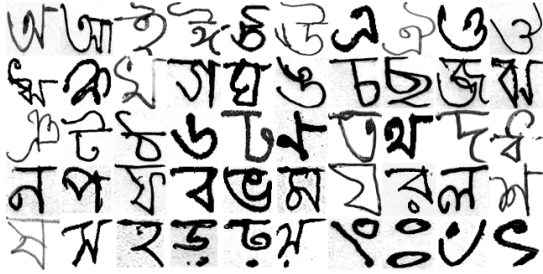 অ আ ই ঈ উ ঊ এ ঐ ও ঔ
ঋ ক খ গ ঘ ঙ চ ছ জ ঝ
ঞ ট ঠ ড ঢ ণ ত থ দ ধ
ন প ফ ব ভ ম য র ল শ
ষ স হ ড় ঢ় য় ং ঃ ঁ ৎ